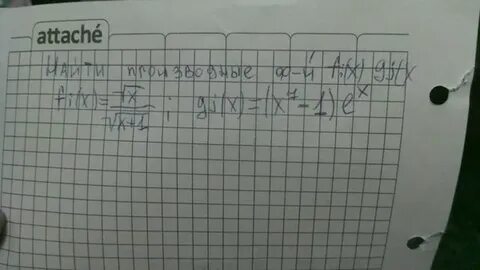 attaché
Найти производные ф-й fi(x) gi(x
fi(x)=√x/√x+1; gi(x)=(x⁷-1)eˣ